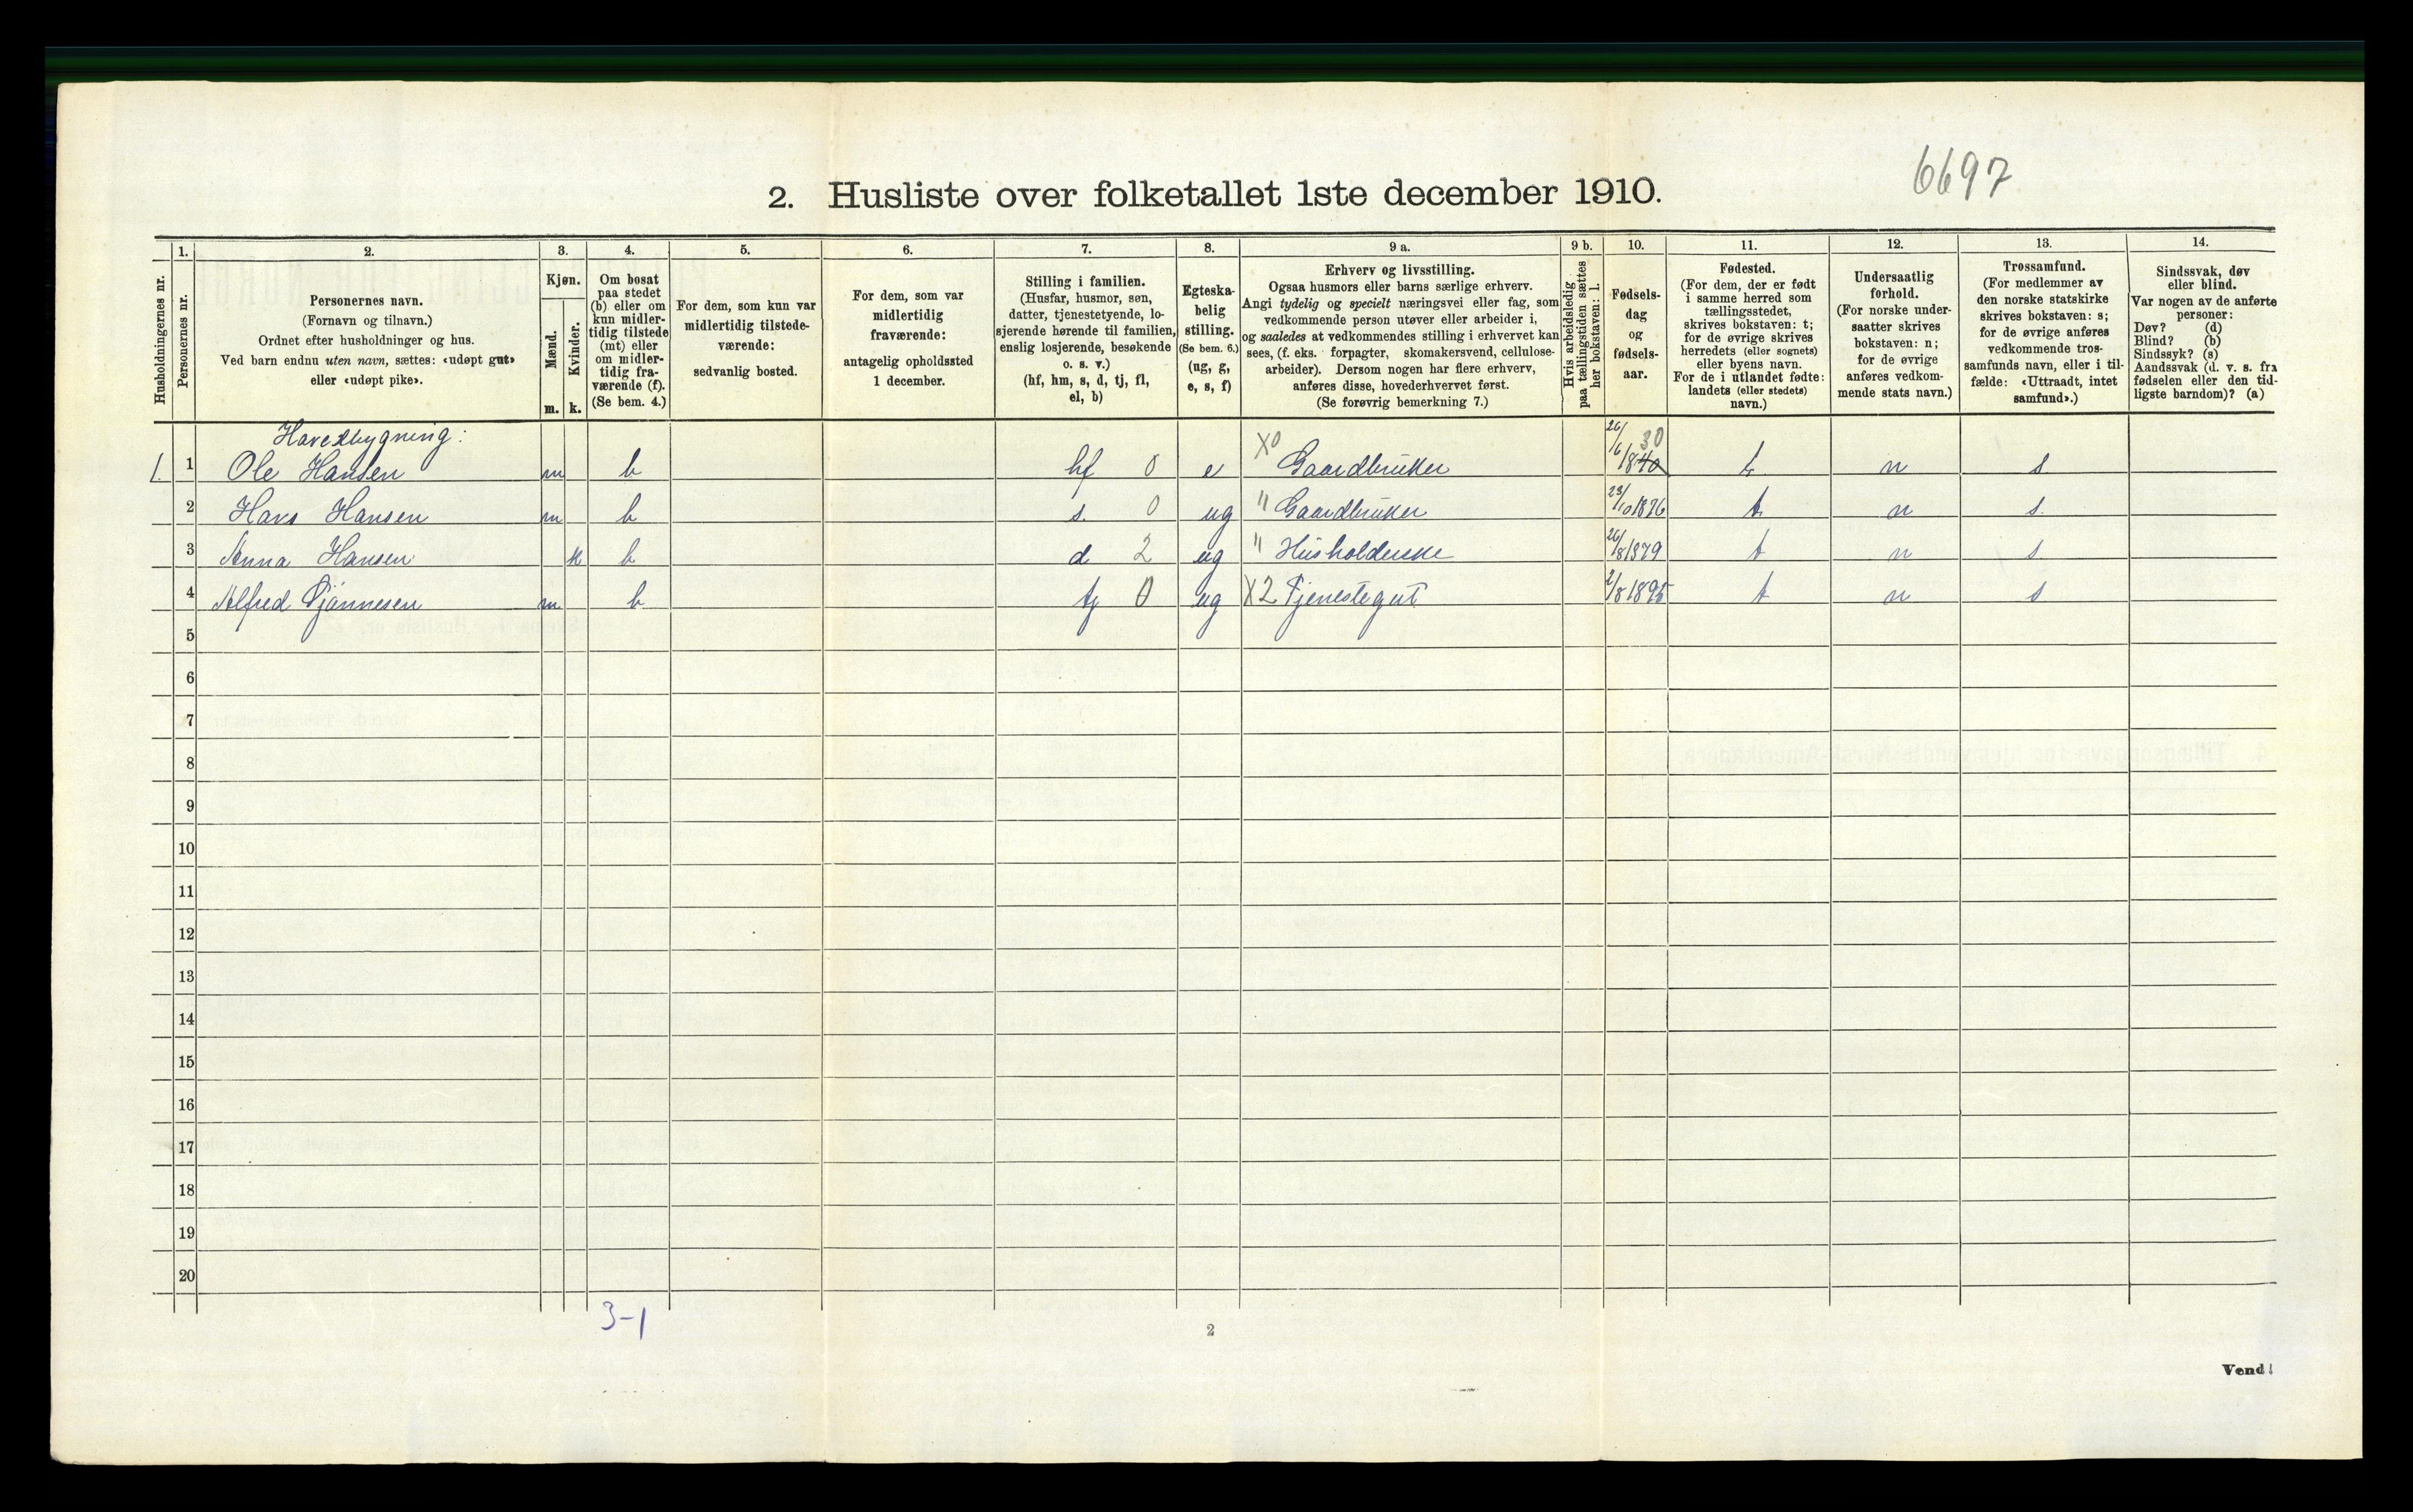 6697
2. Husliste over folketallet 1ste december 1910.
Husholdningernes nr.
1.
Personernes nr.
2.
Personernes navn.
(Fornavn og tilnavn.)
Ordnet efter husholdninger og hus.
Ved barn endnu uten navn, sættes: «udøpt gut»
eller «udøpt pike».
3.
Kjøn.
Mænd.
Kvinder.
m. k.
4.
Om bosat
paa stedet
(b) eller om
kun midler-
tidig tilstede
(mt) eller
om midler-
tidig fra-
værende (f).
(Se bem. 4.)
5.
For dem, som kun var
midlertidig tilstede-
værende:
sedvanlig bosted.
6.
For dem, som var
midlertidig
fraværende:
antagelig opholdssted
1 december.
7.
Stilling i familien.
(Husfar, husmor, søn,
datter, tjenestetyende, lo-
sjerende hørende til familien,
enslig losjerende, besøkende
o. s. v.)
(hf, hm, s, d, tj, fl,
el, b)
8.
Egteska-
belig
stilling.
(Se bem. 6.)
(ug, g,
e, s, f)
9 a.
Erhverv og livsstilling.
Ogsaa husmors eller barns særlige erhverv.
Angi tydelig og specielt næringsvei eller fag, som
vedkommende person utøver eller arbeider i,
og saaledes at vedkommendes stilling i erhvervet kan
sees, (f. eks. forpagter, skomakersvend, cellulose-
arbeider). Dersom nogen har flere erhverv,
anføres disse, hovederhvervet først.
(Se forøvrig bemerkning 7.)
9 b.
Hvis arbeidsledig
paa tællingstiden sættes
her bokstaven: l.
10.
Fødsels-
dag
og
fødsels-
aar.
11.
Fødested.
(For dem, der er født
i samme herred som
tællingsstedet,
skrives bokstaven: t;
for de øvrige skrives
herredets (eller sognets)
eller byens navn.
For de i utlandet fødte:
landets (eller stedets)
navn.)
12.
Undersaatlig
forhold.
(For norske under-
saatter skrives
bokstaven: n;
for de øvrige
anføres vedkom-
mende stats navn.)
13.
Trossamfund.
(For medlemmer av
den norske statskirke
skrives bokstaven: s;
for de øvrige anføres
vedkommende tros-
samfunds navn, eller i til-
fælde: «Uttraadt, intet
samfund».)
14.
Sindssvak, døv
eller blind.
Var nogen av de anførte
personer:
Døv? (d)
Blind? (b)
Sindssyk? (s)
Aandssvak (d. v. s. fra
fødselen eller den tid-
ligste barndom)? (a)
1. 1 Ole Hansen m b hf 0 e X0 Gaardbruker 26/6 1840 30 t n s
2 Hans Hansen m b s. 0 ug " Gaardbruker 23/10 1876 t n s.
3 Anna Hansen k b d 2 ug " Husholderske 26/8 1879 t n s
4 Alfred m b tj 0 ug X2 Tjenestegut 2/8 1895 t n s
5
6
7
8
9
10
11
12
13
14
15
16
17
18
19
20
3-1
2
Vend!